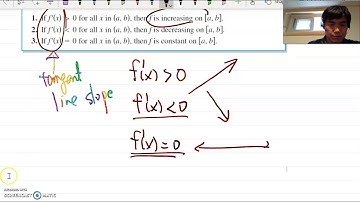 1. If f'(x) > 0 for all x in (a, b), then f is increasing on [a, b].
2. If f'(x) < 0 for all x in (a, b), then f is decreasing on [a, b].
3. If f'(x) = 0 for all x in (a, b), then f is constant on [a, b].
tangent
line slope
f'(x) > 0
f'(x) < 0
f'(x) = 0
RECORDED WITH
SCREENCAST MATIC